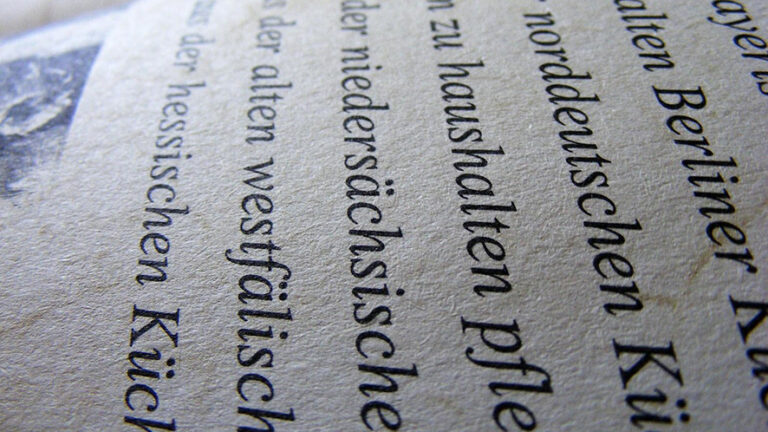 ayeris
alten Berliner Kü
norddeutschen Kü
n zu haushalten pfle
der niedersächsische
s der alten westfälisch
aus der hessischen Küch